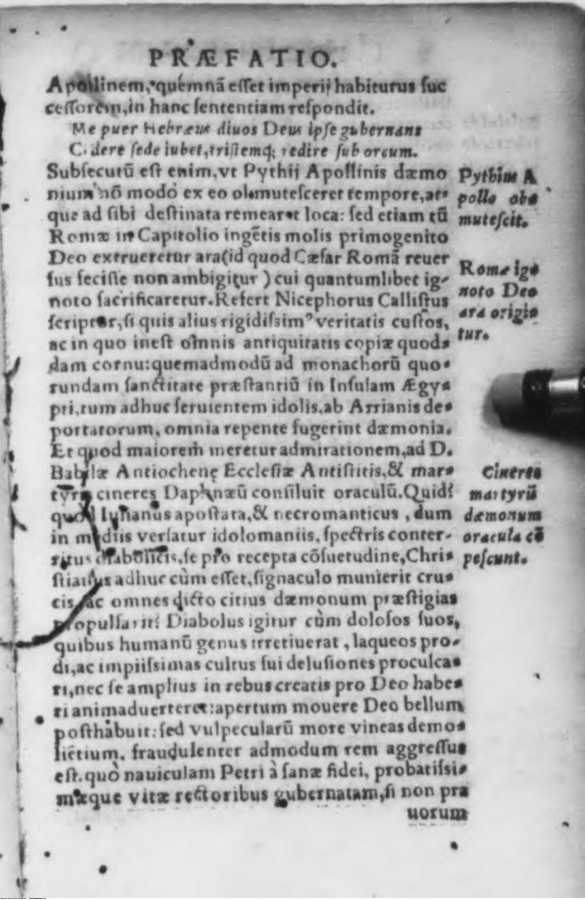 PRÆFATIO.
Apollinem, quemnã esset imperij habiturus suc
cessorem, in hanc sententiam respondit.
Me puer Hebræus diuos Deus ipse gubernans
Cedere sede iubet, tristemq; redire sub orcum.
Subsecutũ est enim, vt Pythij Apollinis dæmo
nium nõ modò ex eo obmutesceret tempore, at-
que ad sibi destinata remearet loca: sed etiam tũ
Romæ in Capitolio ingẽtis molis primogenito
Deo extrueretur ara (id quod Cæsar Romã reuer
sus fecisse non ambigitur) cui quantumlibet ig-
noto sacrificaretur. Refert Nicephorus Callistus
scriptor, si quis alius rigidissim⁹ veritatis custos,
ac in quo inest omnis antiquitatis copiæ quod-
dam cornu: quemadmodũ ad monachorũ quo-
rundam sanctitate præstantiũ in Insulam Ægy-
pti, tum adhuc seruientem idolis, ab Arrianis de-
portatorum, omnia repente fugerint dæmonia.
Et quod maiorem meretur admirationem, ad D.
Babilæ Antiochenę Ecclesiæ Antistitis, & mar-
tyris cineres Daphnæũ consiluit oraculũ. Quid?
quod Iulianus apostata, & necromanticus, dum
in mediis versatur idolomaniis, spectris conter-
ritus diabolicis, se pro recepta cõsuetudine, Chri-
stianus adhuc cùm esset, signaculo munierit cru-
cis, ac omnes dicto citius dæmonum præstigias
propulsarit? Diabolus igitur cùm dolosos suos,
quibus humanũ genus irretiuerat, laqueos pro-
di, ac impiissimas cultus sui delusiones proculca-
ri, nec se amplius in rebus creatis pro Deo habe-
ri animaduerteret: apertum mouere Deo bellum
posthabuit: sed vulpecularũ more vineas demo-
liẽtium, fraudulenter admodum rem aggressus
est. quò nauiculam Petri à sanæ fidei, probatissi-
mæque vitæ rectoribus gubernatam, si non pra
uorum
Pythius A
pollo ob-
mutescit.
Romæ ig-
noto Deo
ara origi-
tur.
Cineres
martyrũ
dæmonum
oracula cõ
pescunt.